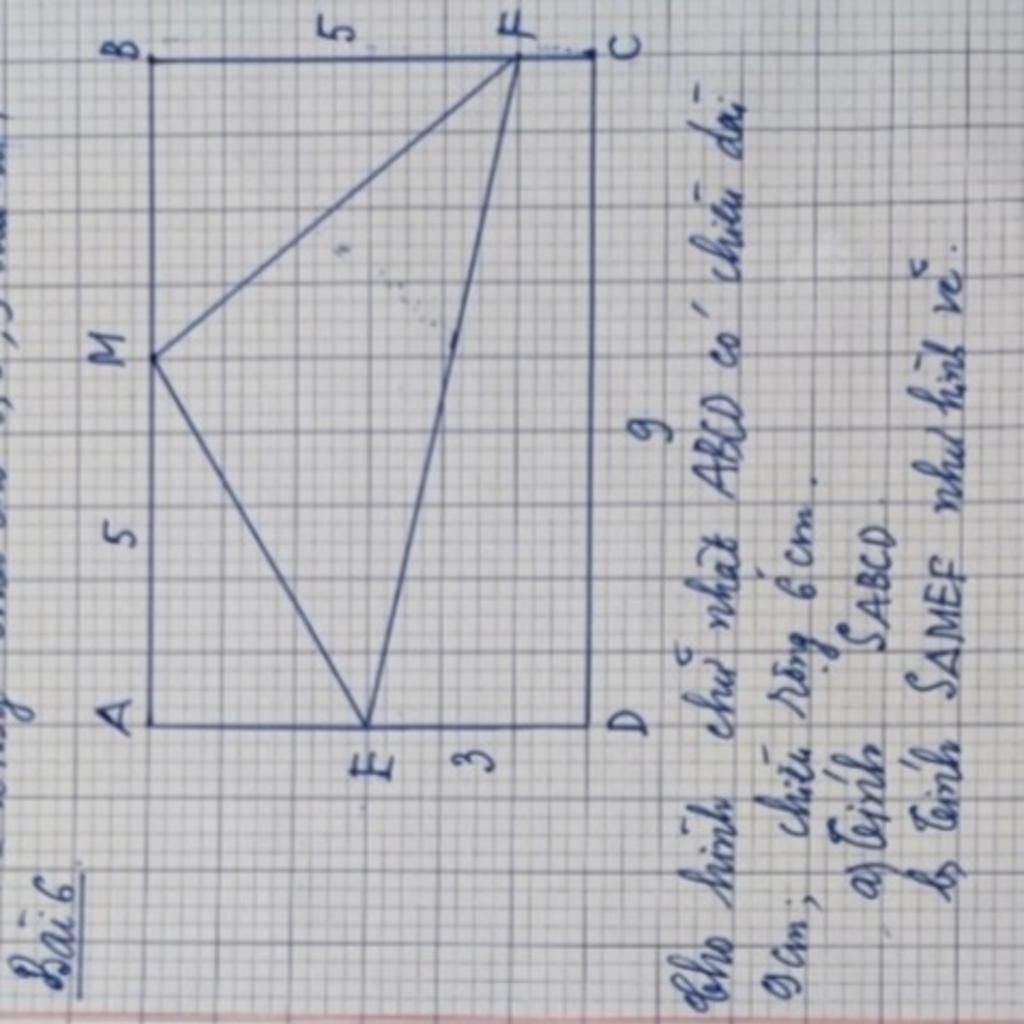 Bài 6
A
5
M
B
5
F
C
E
3
D
9
Cho hình chữ nhật ABCD có chiều dài
9cm, chiều rộng 6cm.
a) Tính SABCD
b) Tính SAMEF như hình vẽ.